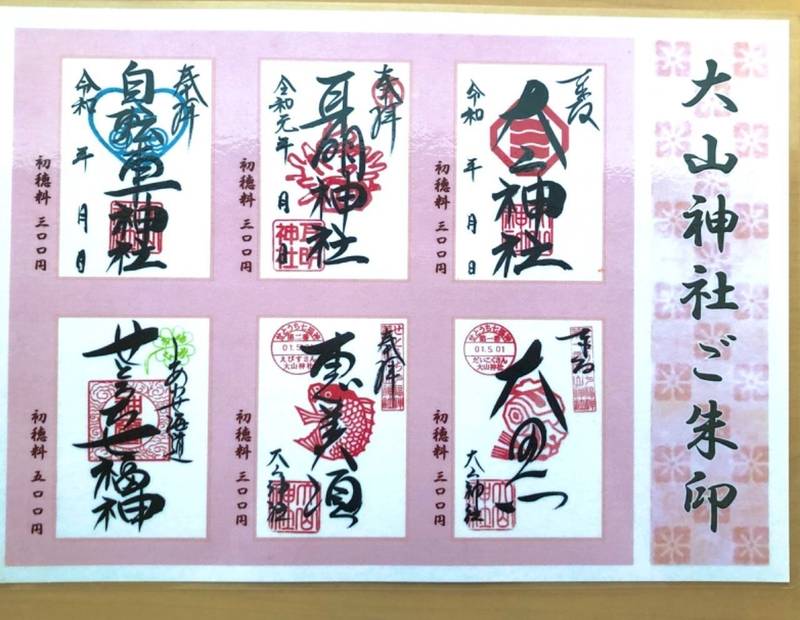 大山神社ご朱印
奉拝
大山神社
令和 年 月 日
初穂料 三〇〇円
奉拝
耳明神社
令和元年 月 日
耳明神社
初穂料 三〇〇円
奉拝
自転車神社
令和 年 月 日
初穂料 三〇〇円
奉拝
せとうち七福神
第一番
01.5.01
だいこくさん
大山神社
大黒天
大山神社
初穂料 三〇〇円
奉拝
せとうち七福神
第一番
01.5.01
えびすさん
大山神社
恵美須
大山神社
初穂料 三〇〇円
しあわせ海道
せとうち七福神
初穂料 五〇〇円